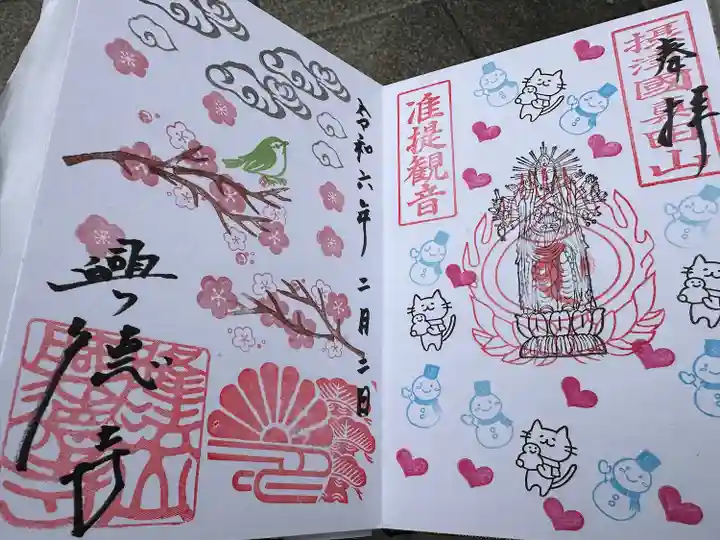 奉拝
摂津國真田山
准提観音
令和六年二月二日
興徳寺